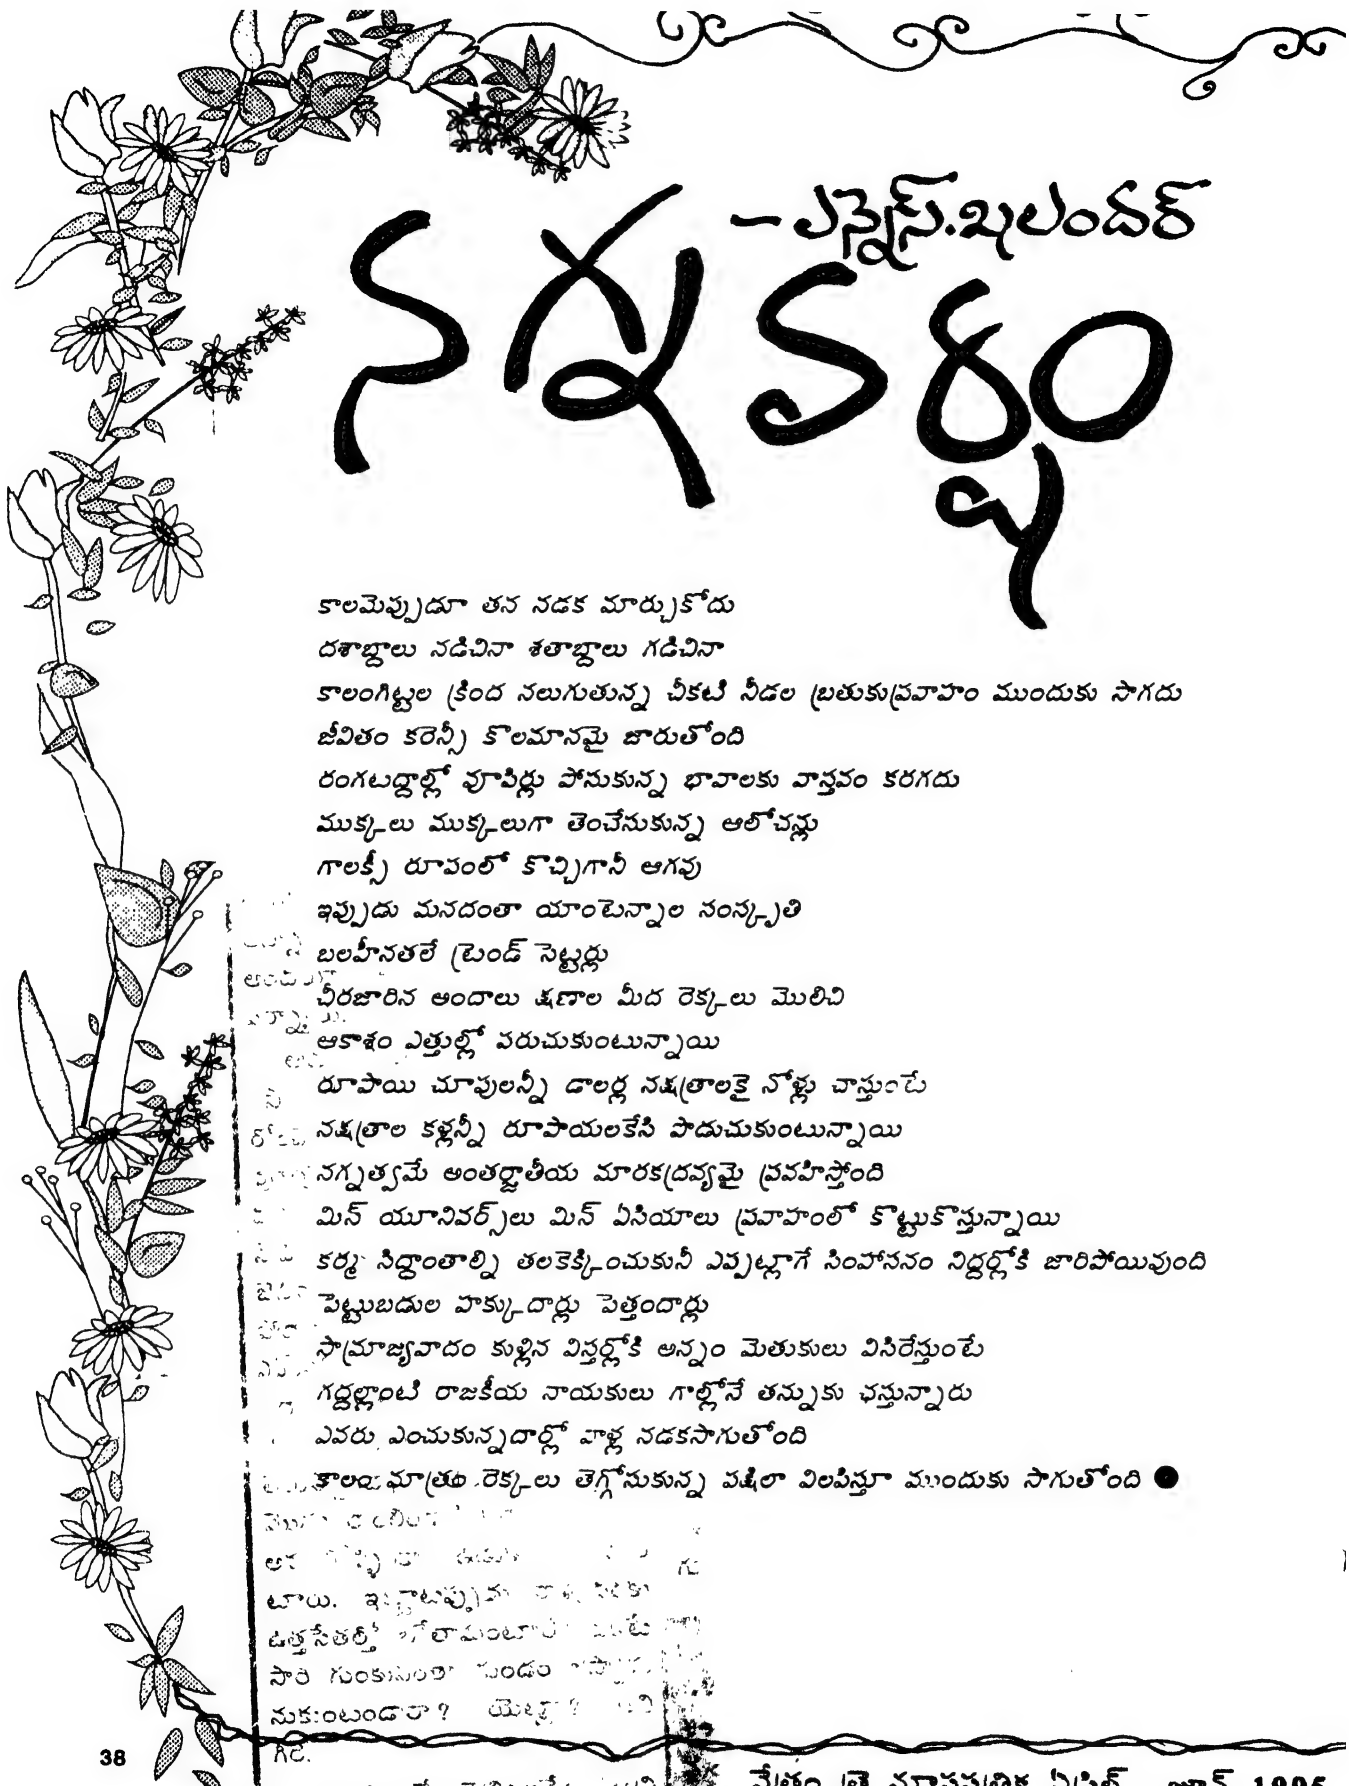 - ఎన్నెస్.ఖలందర్
నగ్నవర్షం
కాలమెప్పుడూ తన నడక మార్చుకోదు
దశాబ్దాలు నడిచినా శతాబ్దాలు గడిచినా
కాలంగిట్టల క్రింద నలుగుతున్న చీకటి నీడల బ్రతుకుప్రవాహం ముందుకు సాగదు
జీవితం కరెన్సీ కొలమానమై జారుతోంది
రంగటద్దాల్లో వూపిర్లు పోసుకున్న భావాలకు వాస్తవం కరగదు
ముక్కలు ముక్కలుగా తెంచేసుకున్న ఆలోచన్లు
గాలక్సీ రూపంలో కొచ్చిగానీ ఆగవు
ఇప్పుడు మనదంతా యాంటెన్నాల సంస్కృతి
బలహీనతలే ట్రెండ్ సెట్టర్లు
చీరజారిన అందాలు క్షణాల మీద రెక్కలు మొలిచి
ఆకాశం ఎత్తుల్లో పరుచుకుంటున్నాయి
రూపాయి చూపులన్నీ డాలర్ల నక్షత్రాలకై నోళ్లు చాస్తుంటే
నక్షత్రాల కళ్లన్నీ రూపాయలకేసి పొడుచుకుంటున్నాయి
నగ్నత్వమే అంతర్జాతీయ మారకద్రవ్యమై ప్రవహిస్తోంది
మిస్ యూనివర్స్‌లు మిస్ ఏసియాలు ప్రవాహంలో కొట్టుకొస్తున్నాయి
కర్మ సిద్ధాంతాల్ని తలకెక్కించుకునీ ఎప్పట్లాగే సింహాసనం నిద్దర్లోకి జారిపోయివుంది
పెట్టుబడుల హక్కుదార్లు పెత్తందార్లు
సామ్రాజ్యవాదం కుళ్లిన విస్తర్లోకి అన్నం మెతుకులు విసిరేస్తుంటే
గద్దల్లాంటి రాజకీయ నాయకులు గాల్లోనే తన్నుకు ఛస్తున్నారు
ఎవరు ఎంచుకున్నదార్లో వాళ్ల నడకసాగుతోంది
కాలం మాత్రం రెక్కలు తెగ్గోసుకున్న పక్షిలా విలపిస్తూ ముందుకు సాగుతోంది
38